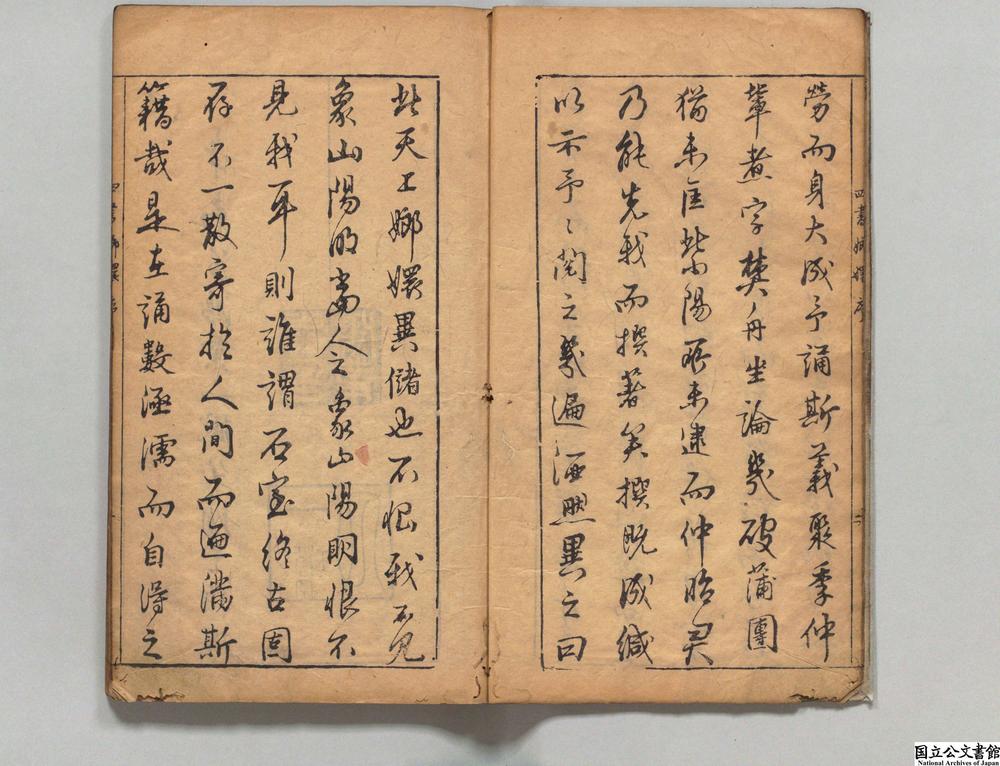 勞而身大成予誦斯義聚季仲
輩煮字焚舟坐論幾破蒲團
猶未匡紫陽所未逮而仲昭君
乃能先我而撰著矣撰既成緘
以示予〻閱之幾遍洒然異之曰
此天上嫏嬛異儲也不恨我不見
象山陽明當人之象山陽明恨不
見我耳則誰謂石室終古固
存不一散寄於人間而遍滿斯
籍哉是在誦數涵濡而自得之
四書嫏嬛序
二
四書嫏嬛序
国立公文書館
National Archives of Japan